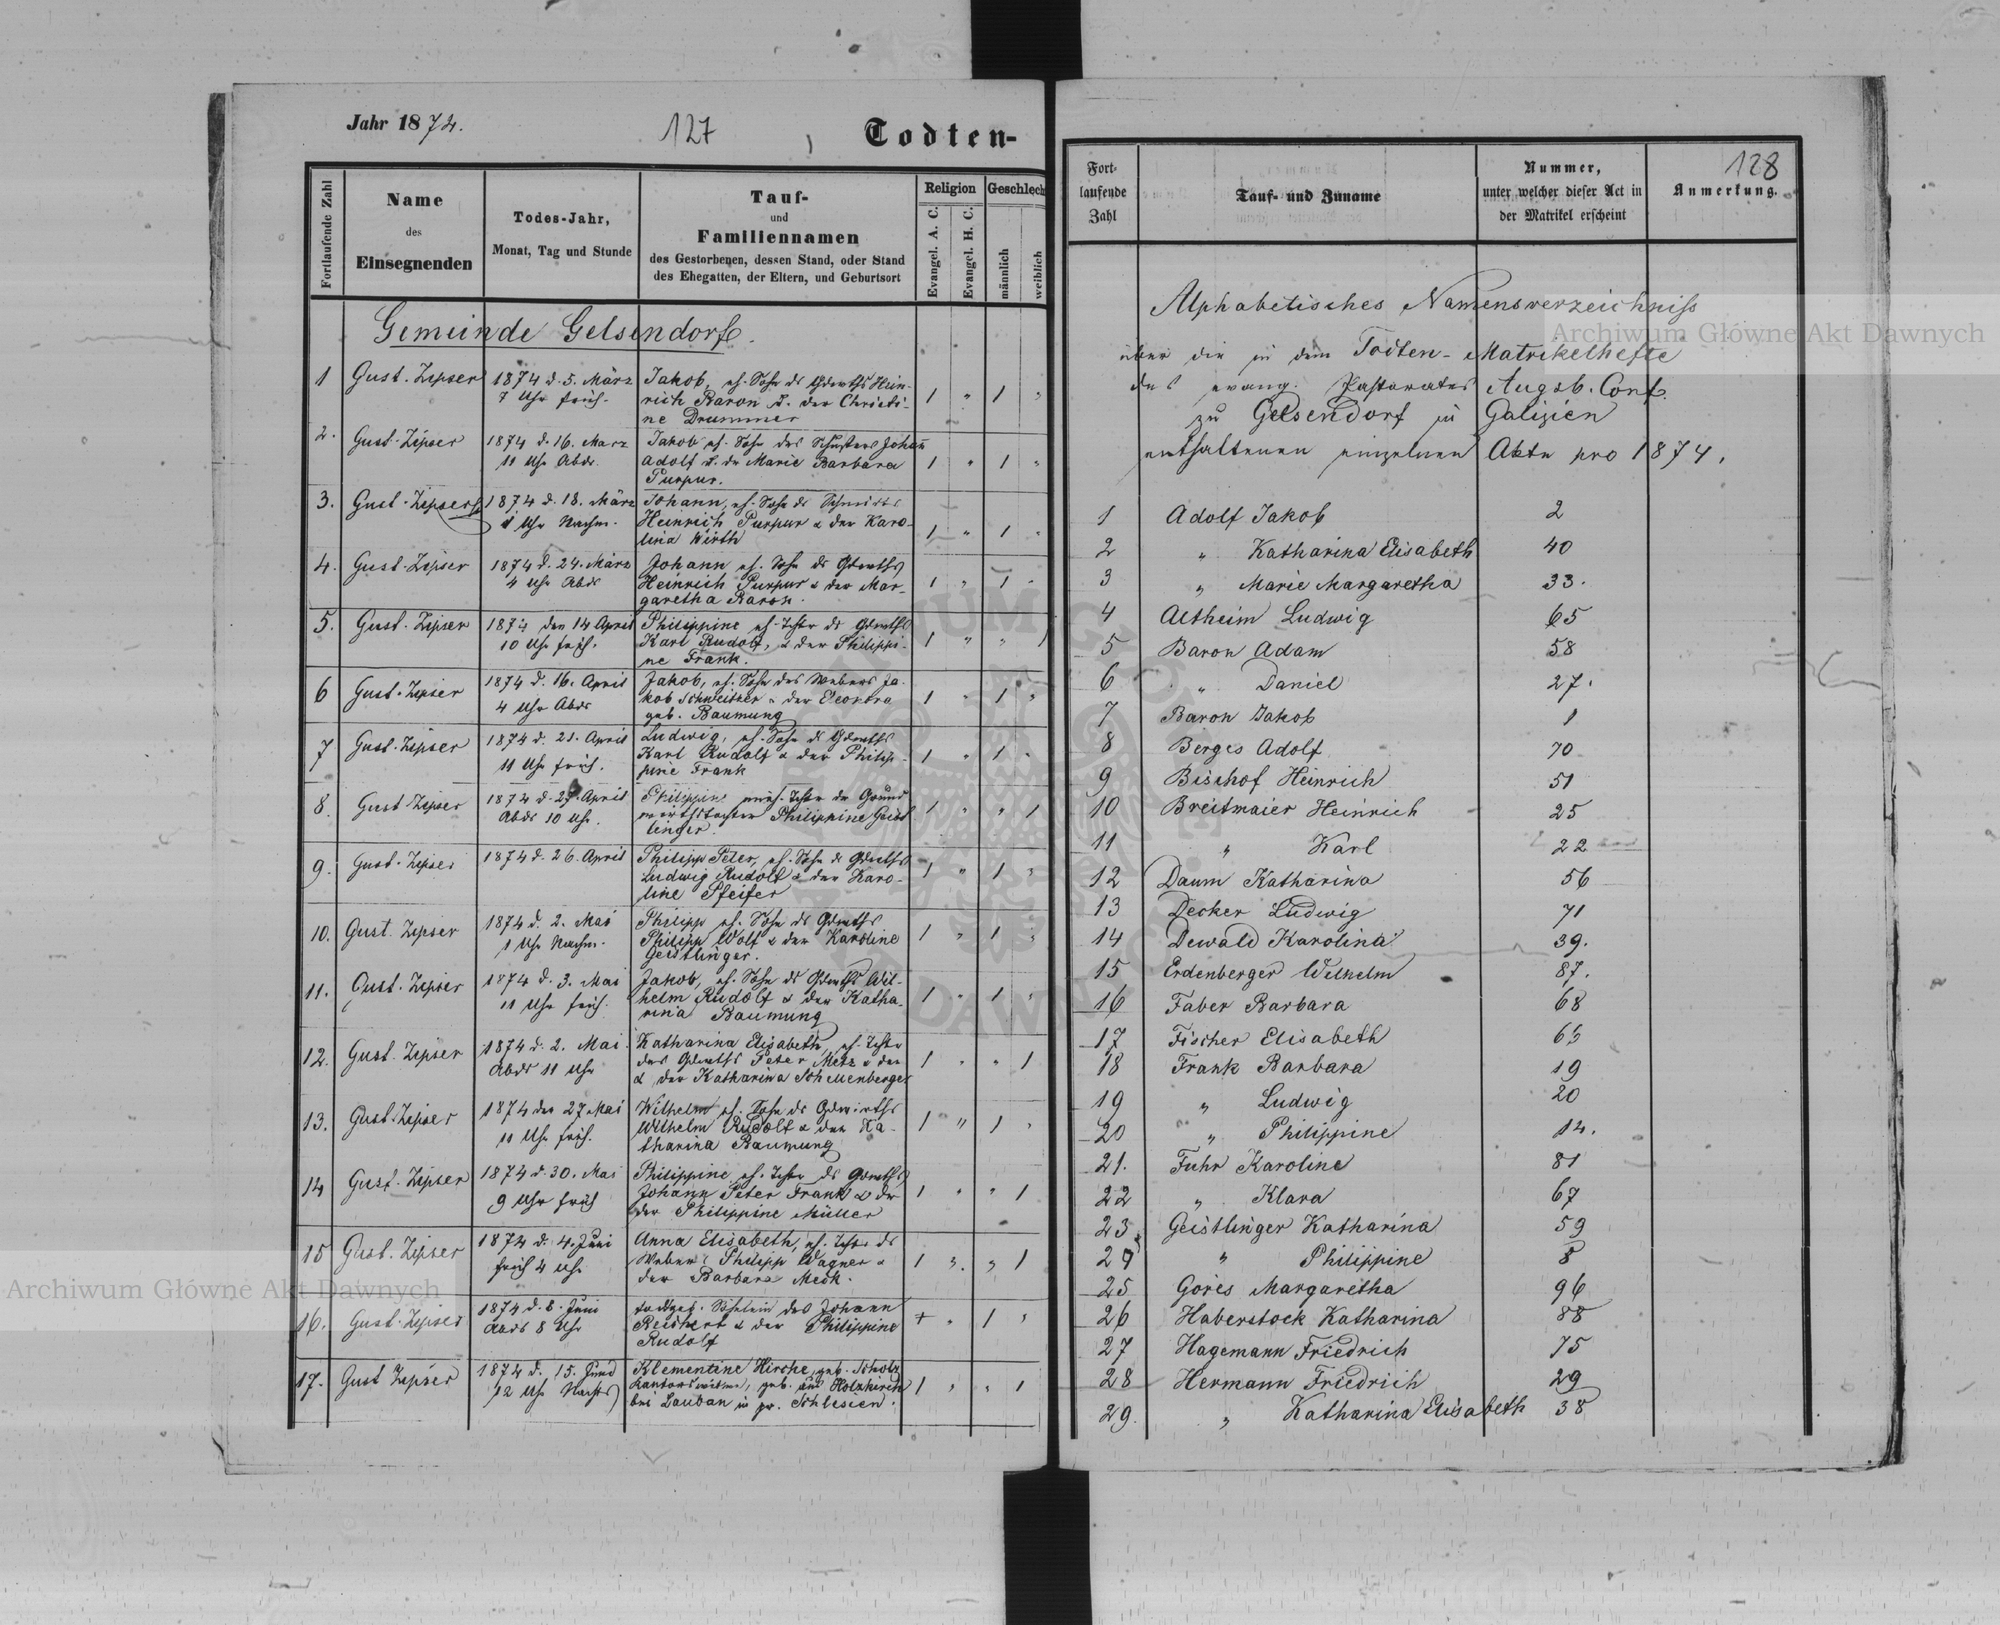 Jahr 1874.
127
Todten-
Fortlaufende Zahl
Name
des
Einsegnenden
Todes-Jahr,
Monat, Tag und Stunde
Tauf-
und
Familiennamen
des Gestorbenen, dessen Stand, oder Stand
des Ehegatten, der Eltern, und Geburtsort
Religion
Geschlech
Evangel. A. C.
Evangel. H. C.
männlich
weiblich
Gemeinde Gelsendorf.
1 Gust. Zipser 1874 d. 5. März Jakob, eh. Sohn ds Gdwrths Hein-
7 Uhr früh. rich Baron u. der Christi- 1 " 1 "
ne Drummer
2. Gust. Zipser 1874 d. 16. März Jakob eh. Sohn des Schusters Johann
11 Uhr Abds. Adolf u. der Marie Barbara 1 " 1 "
Purpur.
3. Gust. Zipser 1874 d. 18. März Johann, eh. Sohn ds Schmidts
1 Uhr Nachm. Heinrich Purpur & der Karo- 1 " 1 "
lina Wirth
4. Gust. Zipser 1874 d. 24. März Johann eh. Sohn ds Gdwrths
4 Uhr Abds Heinrich Purpur & der Mar- 1 " 1 "
garetha Baron.
5. Gust. Zipser 1874 den 14 April Philippine eh. Tchtr ds Gdwrths
10 Uhr früh. Karl Rudolf, & der Philippi- 1 " " 1
ne Frank.
6 Gust. Zipser 1874 d. 16. April Jakob, eh. Sohn des Webers Ja-
4 Uhr Abds kob Schweitzer & der Leonora 1 " 1 "
geb. Baumung
7 Gust. Zipser 1874 d. 21. April Ludwig, eh. Sohn ds Gdwrths
11 Uhr früh. Karl Rudolf & der Philip- 1 " 1 "
pine Frank
8. Gust Zipser 1874 d. 27. April Philippine uneh. Tchtr der Grund
Abds 10 Uhr. wirthstochter Philippine Geist 1 " " 1
linger.
9. Gust. Zipser 1874 d. 26. April Philipp Peter, eh. Sohn ds Gdwrths
Ludwig Rudolf & der Karo- 1 " 1 "
line Pfeifer
10. Gust. Zipser 1874 d. 2. Mai Philipp eh. Sohn ds Gdwrths
1 Uhr Nachm. Philipp Wolf & der Karoline 1 " 1 "
Geistlinger.
11. Gust. Zipser 1874 d. 3. Mai Jakob, eh. Sohn ds Gdwrths Wil-
11 Uhr früh. helm Rudolf & der Katha- 1 " 1 "
rina Baumung
12. Gust. Zipser 1874 d. 2. Mai. Katharina Elisabeth, eh. Tchtr
Abds 11 Uhr des Gdwrths Peter Metz & der 1 " " 1
& der Katharina Schellenberger
13. Gust. Zipser 1874 den 27 Mai Wilhelm eh. Sohn ds Gdwirths
11 Uhr früh. Wilhelm Rudolf & der Ka- 1 " 1 "
tharina Baumung
14 Gust. Zipser 1874 d. 30. Mai Philippine eh. Tchtr ds Gdwrths
9 Uhr früh Johann Peter Frank & der 1 " " 1
der Philippine Müller
15 Gust. Zipser 1874 d. 4. Juni Anna Elisabeth, eh. Tchtr ds
früh 4 Uhr Webers Philipp Wagner & 1 " " 1
der Barbara Meck.
16. Gust. Zipser 1874 d. 8. Juni todtgeb. Söhnlein des Johann
Abds 8 Uhr Reichert & der Philippine + " 1 "
Rudolf
17. Gust Zipser 1874 d. 15. Juni Klementine Hirche, geb. Scholz
12 Uhr Nachts Kantorswitwe, geb. aus Holzkirch 1 " " 1
bei Lauban in pr. Schlesien.
128
Fort-
laufende
Zahl
Tauf- und Zuname
Nummer,
unter welcher dieser Act in
der Matrikel erscheint
Anmerkung.
Alphabetisches Namensverzeichniss
über die in dem Todten-Matrikelhefte
des evang. Pastorates Augsb. Conf.
zu Gelsendorf in Galizien
enthaltenen einzelnen Akte pro 1874.
1 Adolf Jakob 2
2 " Katharina Elisabeth 40
3 " Marie Margaretha 33.
4 Altheim Ludwig 65
5 Baron Adam 58
6 " Daniel 27.
7 Baron Jakob 1
8 Berges Adolf 70
9 Bischof Heinrich 51
10 Breitmaier Heinrich 25
11 " Karl 22
12 Daum Katharina 56
13 Decker Ludwig 71
14 Dewald Karolina 39.
15 Erdenberger Wilhelm 87.
16 Faber Barbara 68
17 Fischer Elisabeth 63
18 Frank Barbara 19
19 " Ludwig 20
20 " Philippine 14.
21. Fuhr Karoline 81
22 " Klara 67
23. Geistlinger Katharina 59
24 " Philippine 8
25 Gores Margaretha 96
26 Haberstock Katharina 88
27 Hagemann Friedrich 75
28 Hermann Friedrich 29
29. " Katharina Elisabeth 38
Archiwum Główne Akt Dawnych
Archiwum Główne Akt Dawnych